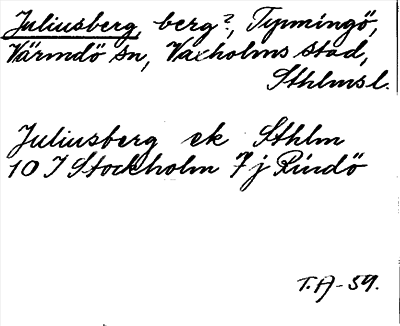 Juliusberg, berg?, Tynningö,
Värmdö sn, Vaxholms stad,
Sthlmsl.
Juliusberg ek Sthlm
10 I Stockholm 7 j Rindö
T.A-59.